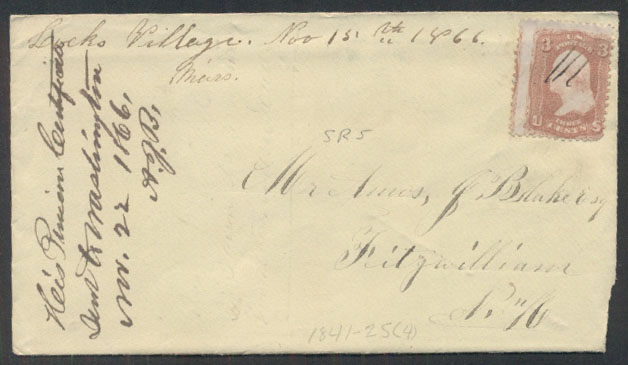 Locks Village. Nov 15th 1866.
Mass.
U.S. POSTAGE
3 3
U S
THREE CENTS
SR5
Mr Amos, J Blake esq
Fitzwilliam
N. H
1841-25(4)
His Pension Certificate
Sent to Washington
Nov. 22 1866,
A.J.B,